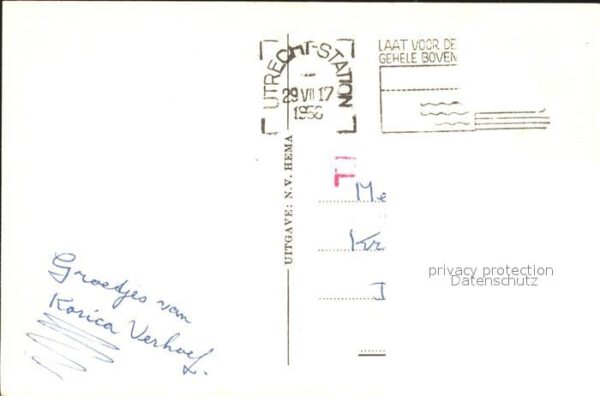 UTRECHT-STATION
29 VII 17
1956
LAAT VOOR DE
GEHELE BOVEN
UITGAVE: N.V. HEMA
T
Me
Kr
I
privacy protection
Datenschutz
Groetjes van
Korica Verhoef.